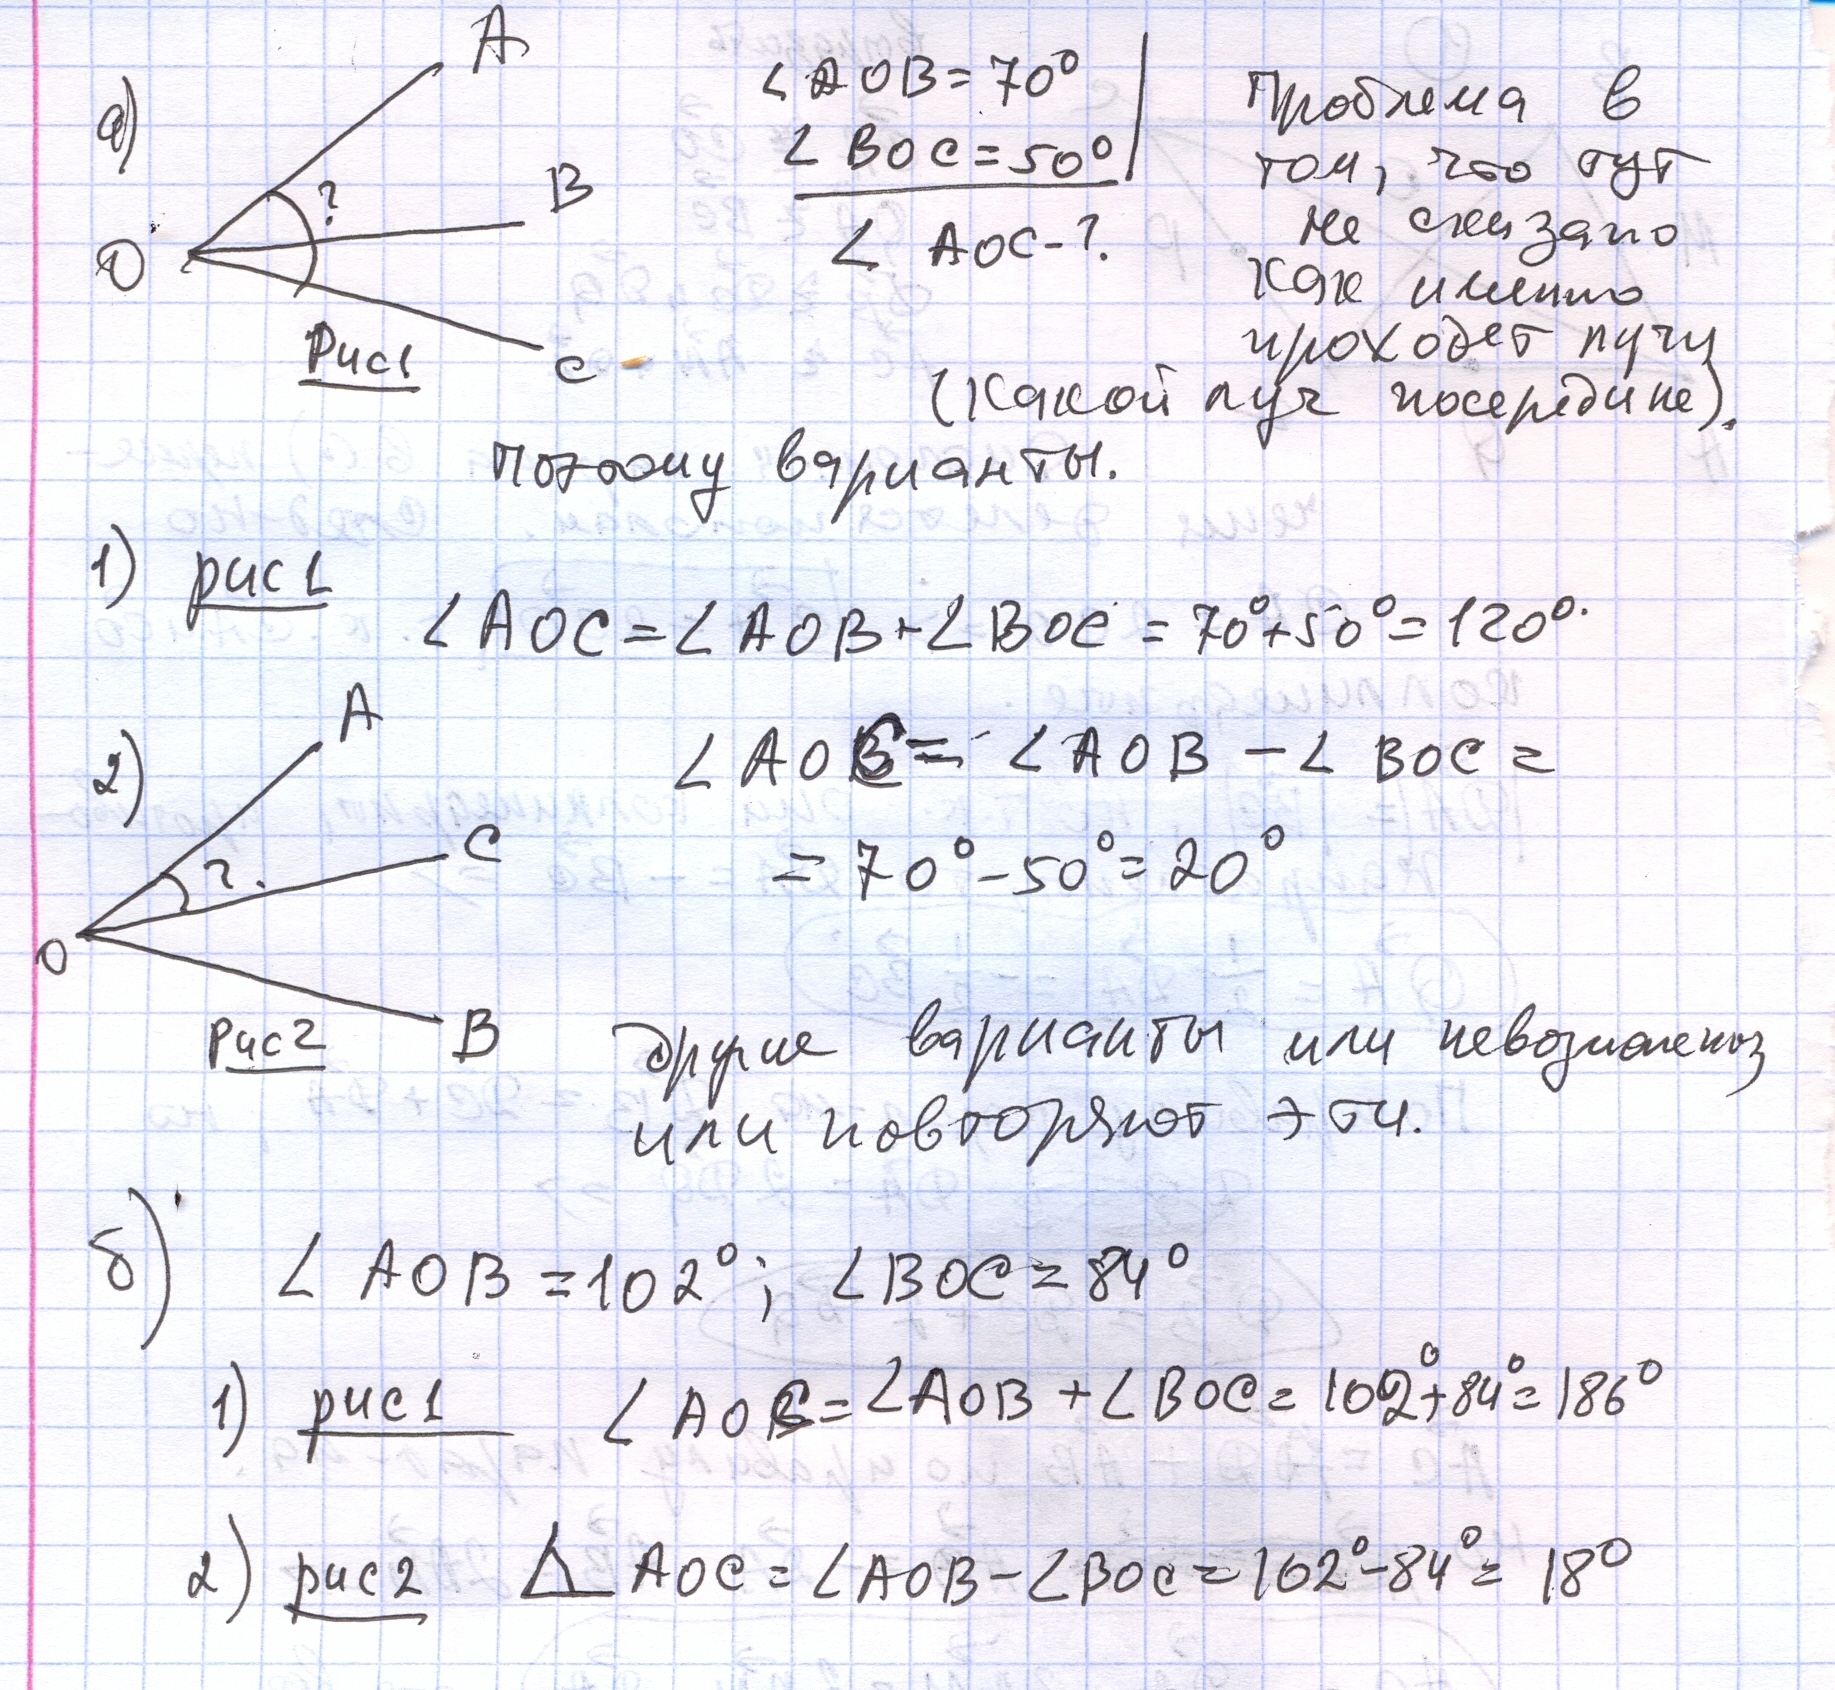 а)
A
B
C
O
?
Рис1
∠AOB=70°
∠BOC=50°
∠AOC-?
Проблема в
том, что тут
не сказано
как именно
проходет лучи
(какой луч посередине).
Поэтому варианты.
1) рис1
∠AOC=∠AOB+∠BOC=70°+50°=120°.
2)
A
C
B
O
?.
Рис2
∠AOC=∠AOB-∠BOC=
=70°-50°=20°
другие варианты или невозможны
или повторяют эти.
б)
∠AOB=102°; ∠BOC=84°
1) рис1 ∠AOC=∠AOB+∠BOC=102°+84°=186°
2) рис2 ∠AOC=∠AOB-∠BOC=102°-84°=18°